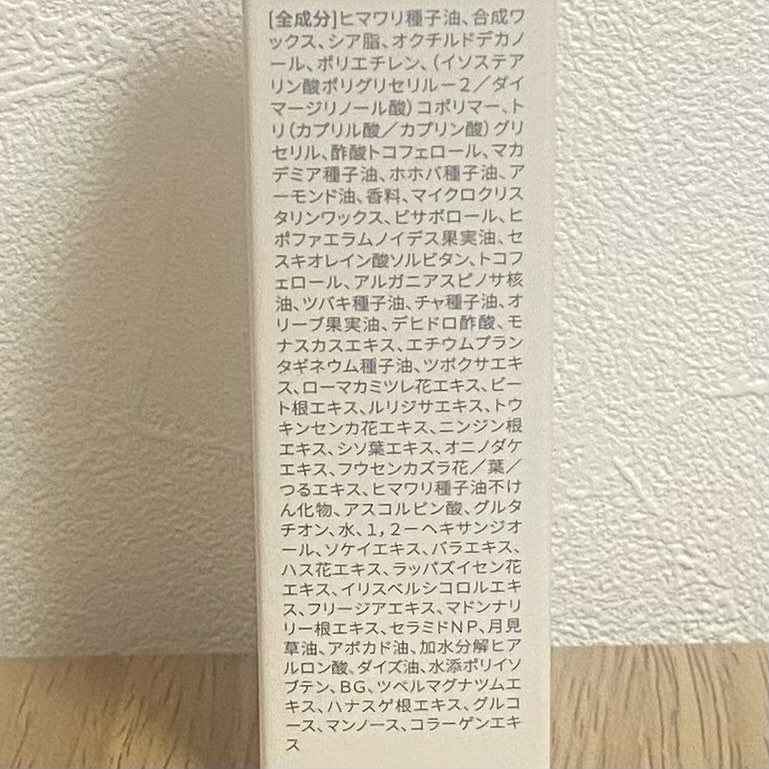 [全成分]ヒマワリ種子油、合成ワ
ックス、シア脂、オクチルドデカノ
ール、ポリエチレン、(イソステア
リン酸ポリグリセリルー2/ダイ
マージリノール酸)コポリマー、ト
リ(カプリル酸/カプリン酸)グリ
セリル、酢酸トコフェロール、マカ
デミア種子油、ホホバ種子油、ア
ーモンド油、香料、マイクロクリス
タリンワックス、ビサボロール、ヒ
ポファエラムノイデス果実油、セ
スキオレイン酸ソルビタン、トコフ
ェロール、アルガニアスピノサ核
油、ツバキ種子油、チャ種子油、オ
リーブ果実油、デヒドロ酢酸、モ
ナスカスエキス、エチウムプラン
タギネウム種子油、ツボクサエキ
ス、ローマカミツレ花エキス、ビー
ト根エキス、ルリジサエキス、トウ
キンセンカ花エキス、ニンジン根
エキス、シソ葉エキス、オニノダケ
エキス、フウセンカズラ花/葉/
つるエキス、ヒマワリ種子油不け
ん化物、アスコルビン酸、グルタ
チオン、水、1,2ーヘキサンジオ
ール、ソケイエキス、バラエキス、
ハス花エキス、ラッパズイセン花
エキス、イリスベルシコロルエキ
ス、フリージアエキス、マドンナリ
リー根エキス、セラミドNP、月見
草油、アボカド油、加水分解ヒア
ルロン酸、ダイズ油、水添ポリイソ
ブテン、BG、ツベルマグナツムエ
キス、ハナスゲ根エキス、グルコ
ース、マンノース、コラーゲンエキ
ス